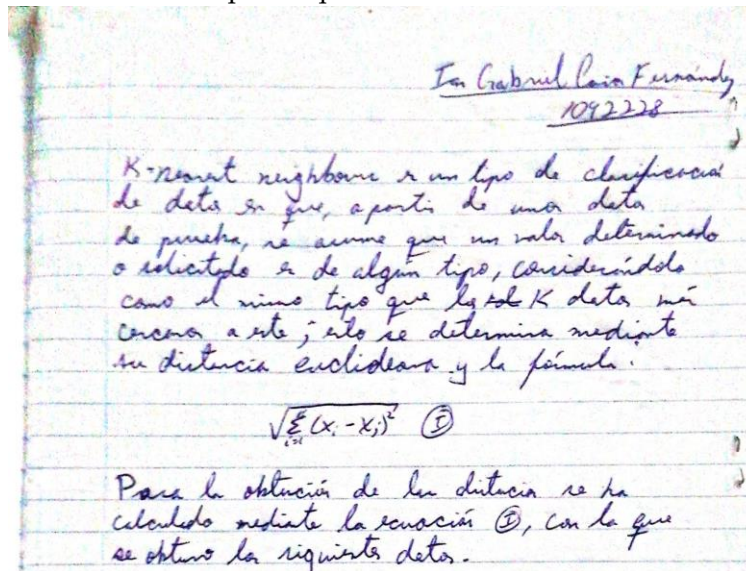 Ian Gabriel Fernández
1092228
K-nearest neighbours es un tipo de clasificación
de datos en que, a partir de unos datos
de prueba, se asume que un valor determinado
o solicitado es de algún tipo, considerándolo
como el mismo tipo que los K datos más
cercanos a este; esto se determina mediante
su distancia euclideana y la fórmula:
√Σ(xᵢ - xⱼ)² Ⓘ
Para la obtención de las distancia se ha
calculado mediante la ecuación Ⓘ, con la que
se obtuvo los siguientes datos.